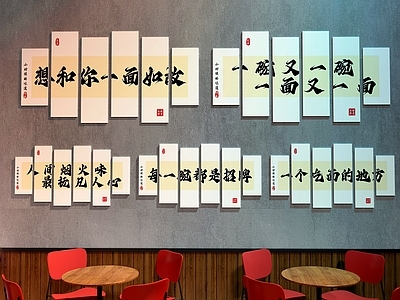 想和你一面如故
一碗又一碗
一面又一面
人间烟火味
最抚凡人心
每一碗都是招牌
一个吃面的地方